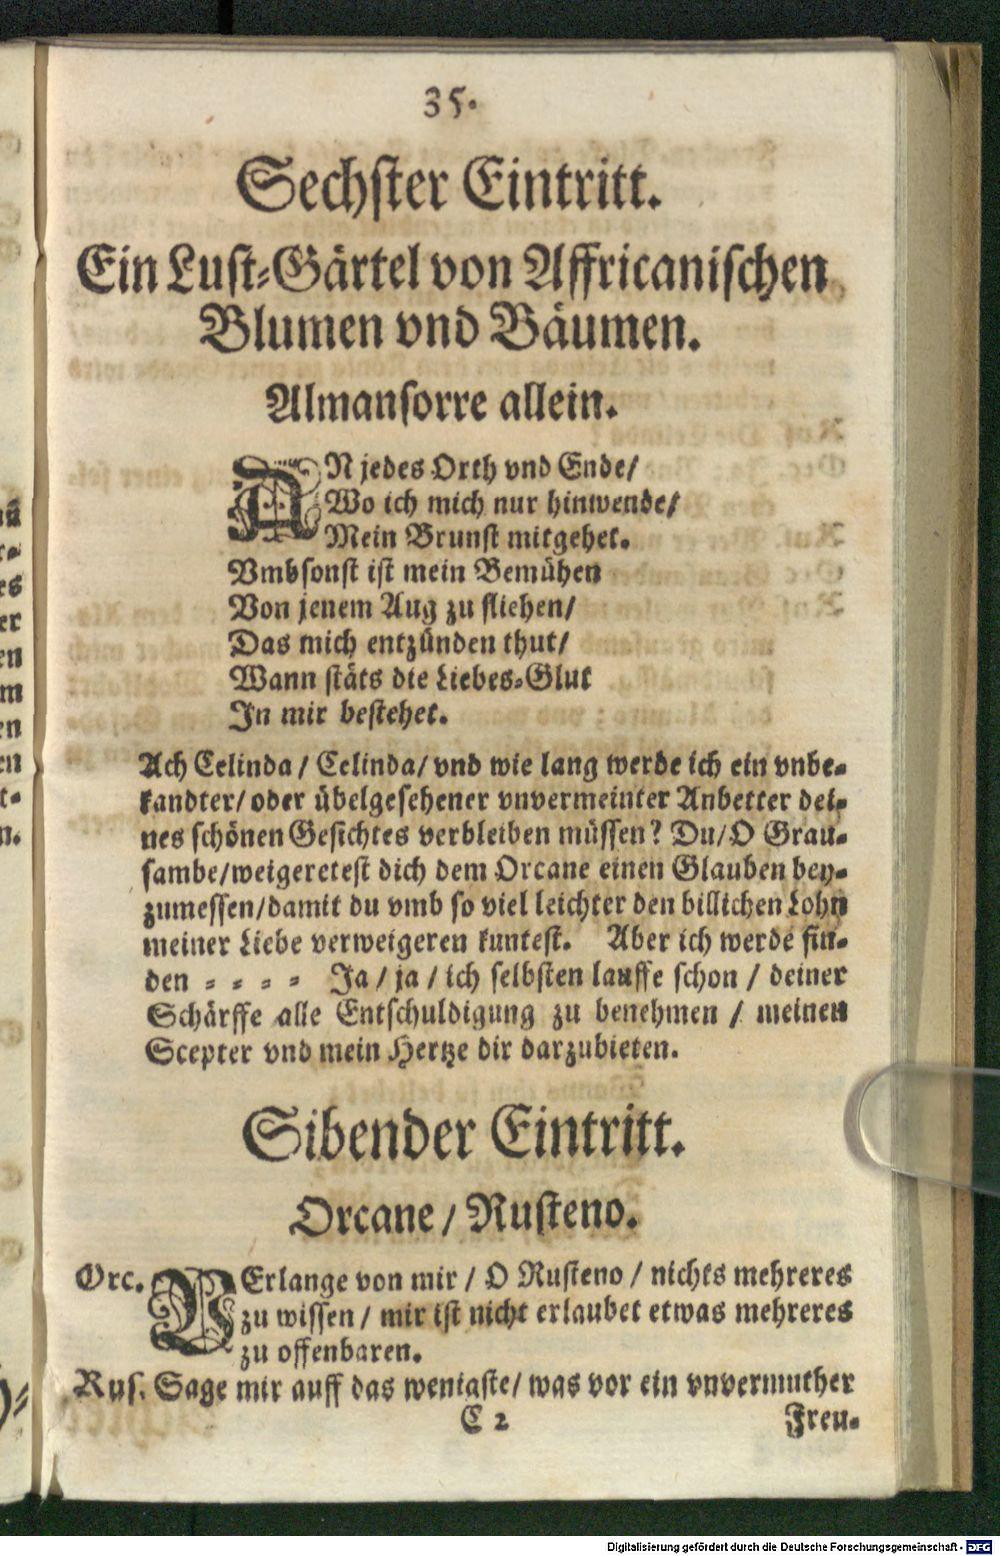 35.
Sechster Eintritt.
Ein Lust-Gärtel von Affricanischen
Blumen vnd Bäumen.
Almansorre allein.
AN jedes Orth vnd Ende/
Wo ich mich nur hinwende/
Mein Brunst mitgehet.
Vmbsonst ist mein Bemühen
Von jenem Aug zu fliehen/
Das mich entzünden thut/
Wann stäts die Liebes-Glut
In mir bestehet.
Ach Celinda / Celinda/ vnd wie lang werde ich ein vnbe-
kandter/ oder übelgesehener vnvermeinter Anbetter dei-
nes schönen Gesichtes verbleiben müssen? Du/O Grau-
sambe/weigeretest dich dem Orcane einen Glauben bey-
zumessen/damit du vmb so viel leichter den billichen Lohn
meiner Liebe verweigeren kuntest. Aber ich werde fin-
den - - - - Ja / ja / ich selbsten lauffe schon / deiner
Schärffe alle Entschuldigung zu benehmen / meinen
Scepter vnd mein Hertze dir darzubieten.
Sibender Eintritt.
Orcane / Rusteno.
Orc. VErlange von mir / O Rusteno / nichts mehreres
zu wissen / mir ist nicht erlaubet etwas mehreres
zu offenbaren.
Rus. Sage mir auff das wenigste/ was vor ein vnvermuther
C 2 Freu-
Digitalisierung gefördert durch die Deutsche Forschungsgemeinschaft - DFG